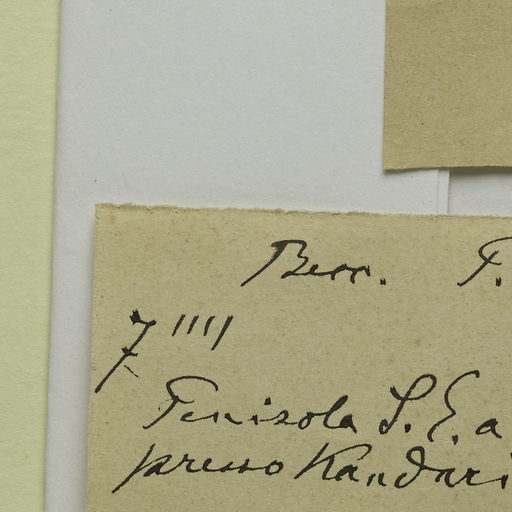 Becc. P.
7''''
Penisola S. E. a
presso Kandari